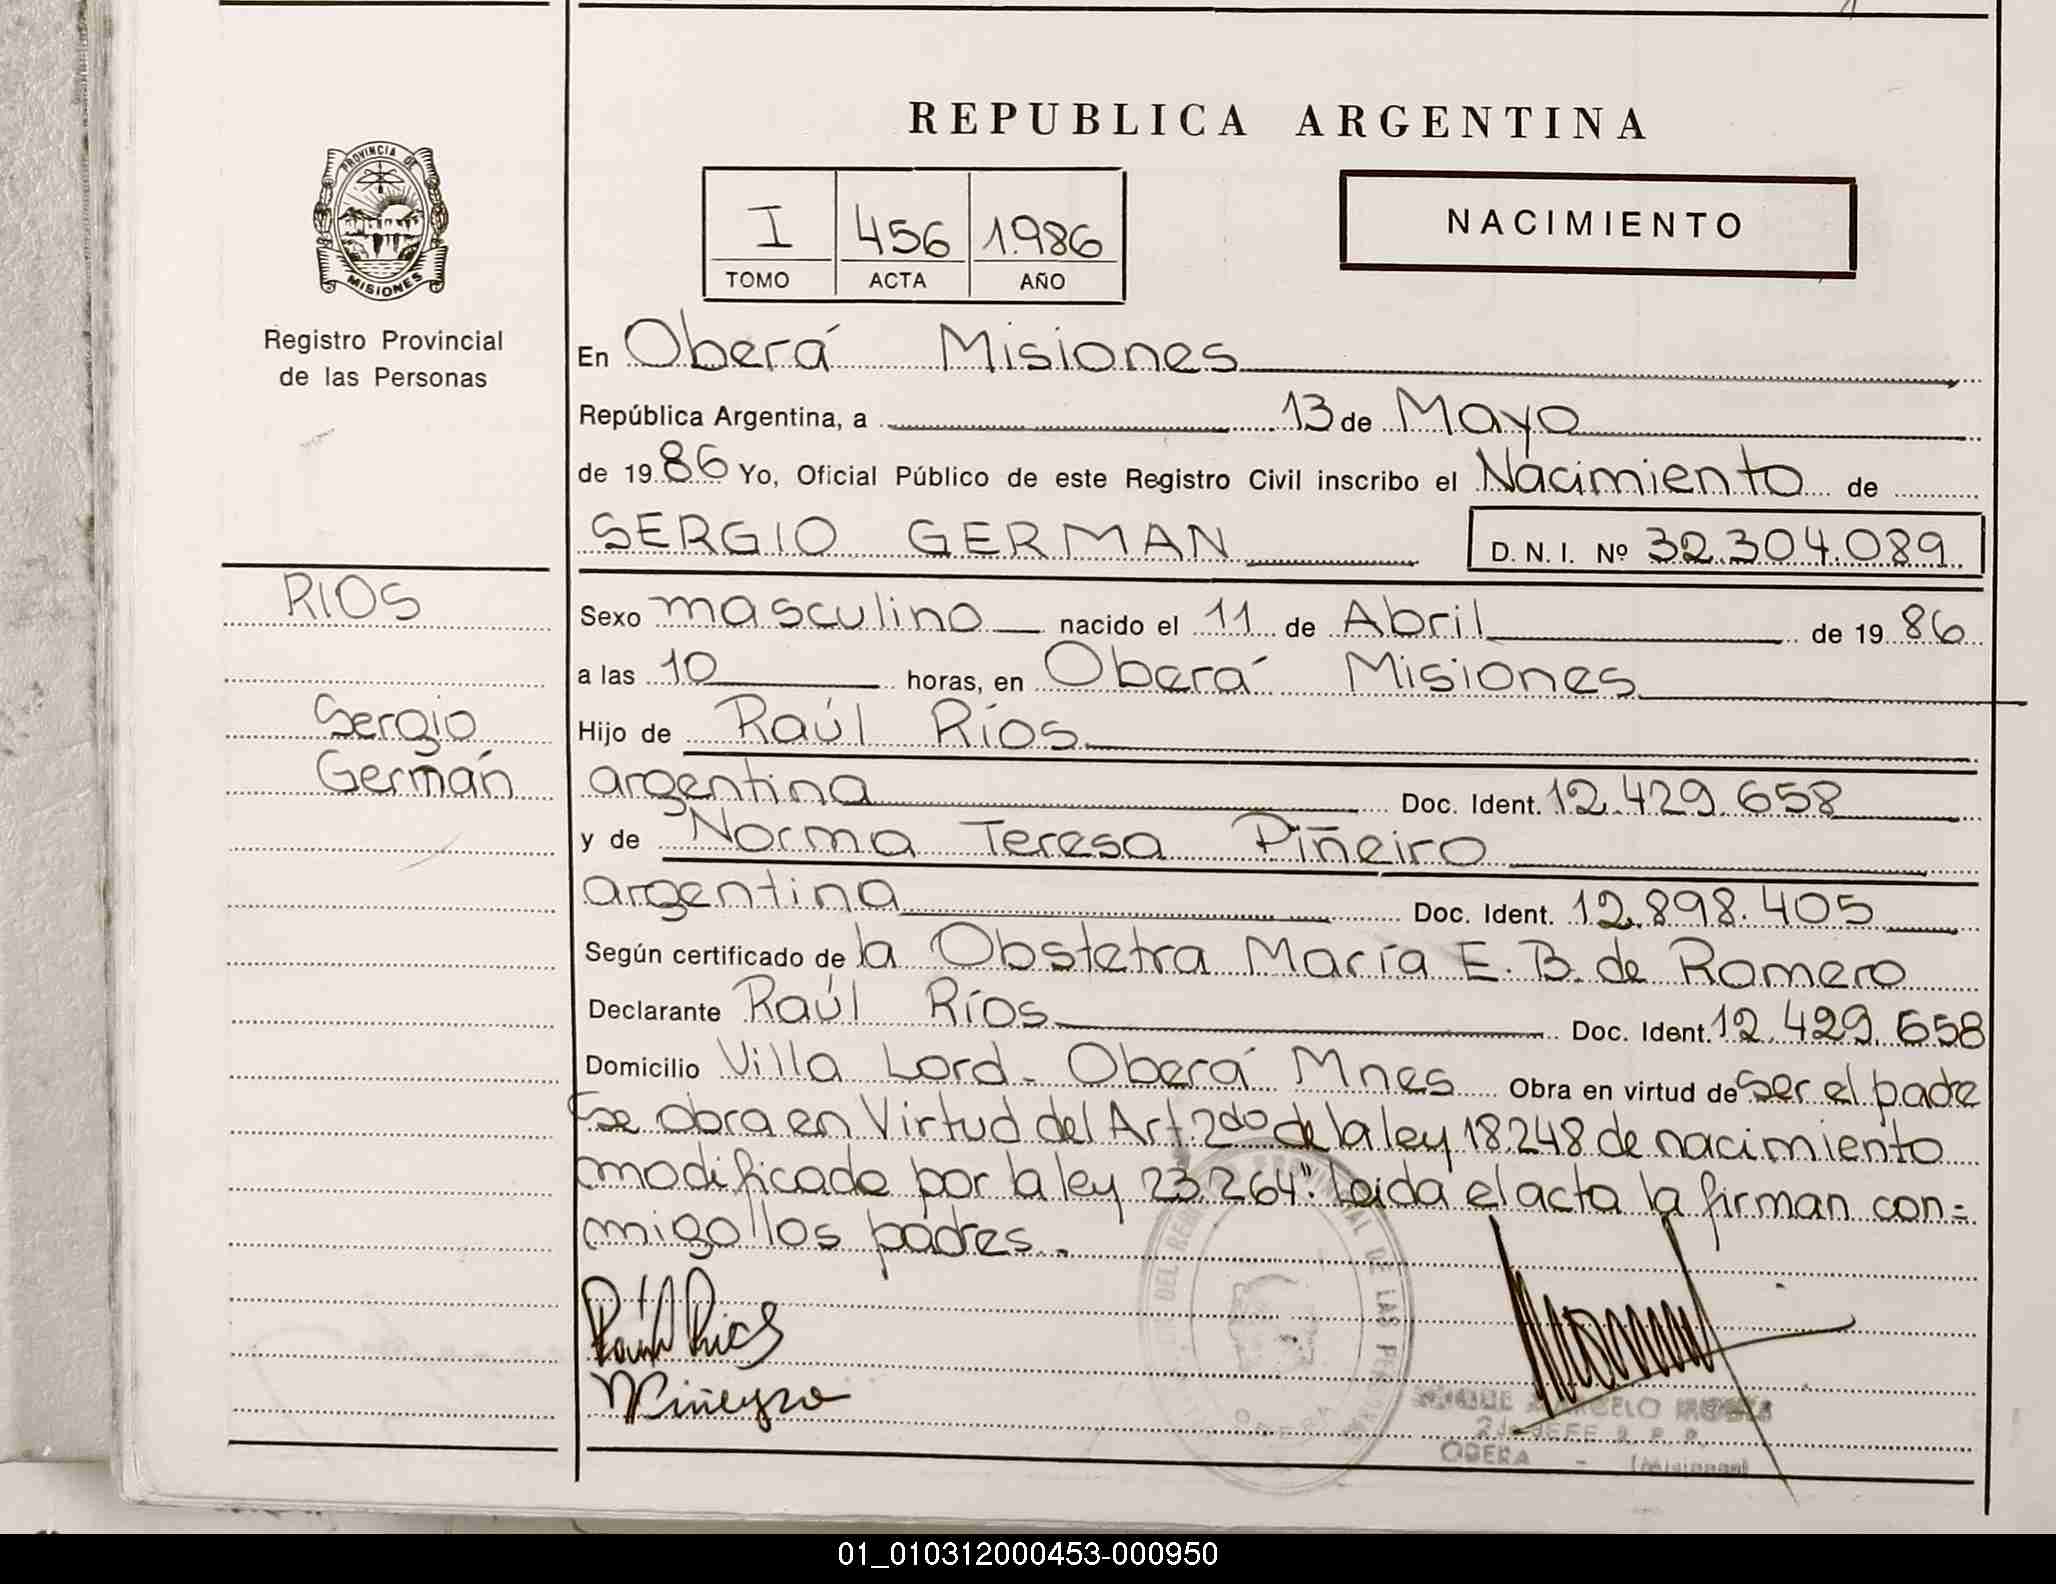 REPUBLICA ARGENTINA
PROVINCIA DE
MISIONES
Registro Provincial
de las Personas
I 456 1.986
TOMO ACTA AÑO
NACIMIENTO
En Oberá Misiones
República Argentina, a 13 de Mayo
de 1986 Yo, Oficial Público de este Registro Civil inscribo el Nacimiento de
SERGIO GERMAN D. N. I. Nº 32.304.089
RIOS
Sergio
Germán
Sexo masculino nacido el 11 de Abril de 1986
a las 10 horas, en Oberá Misiones
Hijo de Raúl Ríos
argentina Doc. Ident. 12.429.658
y de Norma Teresa Piñeiro
argentina Doc. Ident. 12.898.405
Según certificado de la Obstetra María E. B. de Romero
Declarante Raúl Ríos Doc. Ident. 12.429.658
Domicilio Villa Lord - Oberá Mnes Obra en virtud de ser el padre
"Se obra en Virtud del Art. 2do de la ley 18.248 de nacimiento
modificado por la ley 23.264". Leida el acta la firman con=
migo los padres.
Raúl Rios
N Piñeyro
DEL REGISTRO PROVINCIAL DE LAS PERSONAS
OBERA
2do JEFE R. P. P.
OBERA - (Misiones)
01_010312000453-000950